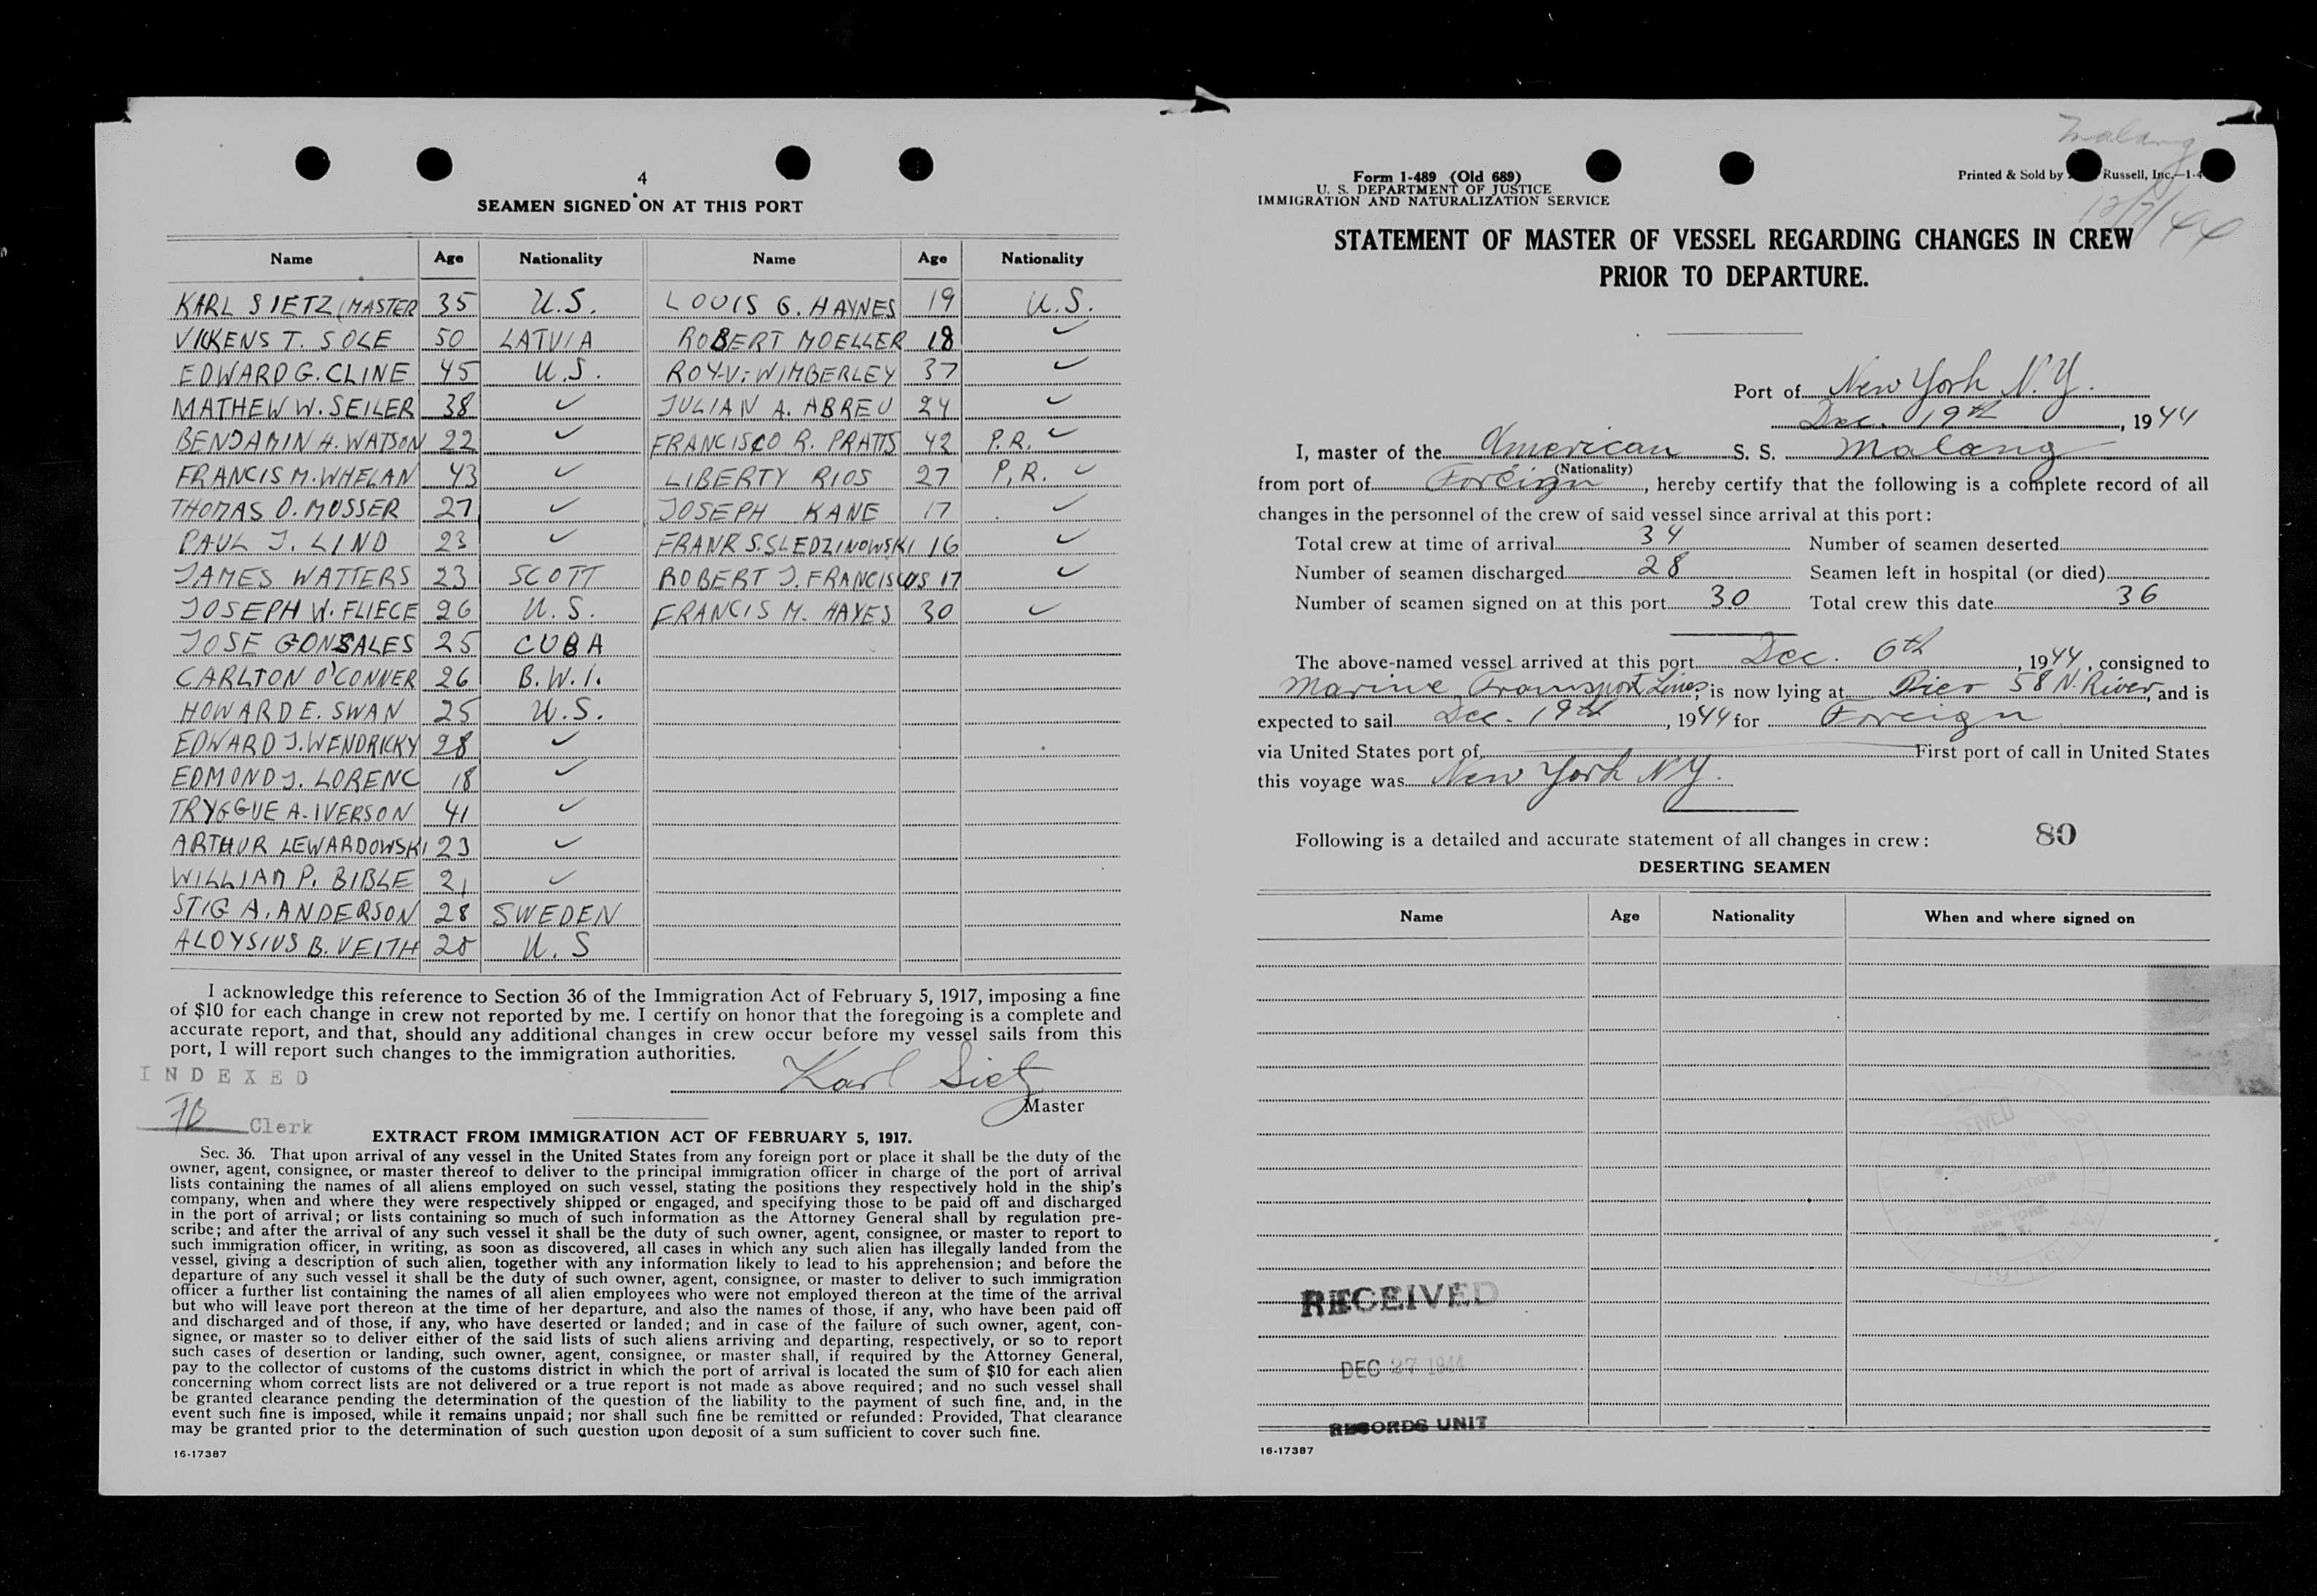 4
SEAMEN SIGNED ON AT THIS PORT
Name Age Nationality Name Age Nationality
KARL SIETZ (MASTER 35 U.S. LOUIS G. HAYNES 19 U.S.
VICKENS T. SOLE 50 LATVIA ROBERT MOELLER 18 ✓
EDWARD G. CLINE 45 U.S. ROY V. WIMBERLEY 37 ✓
MATHEW W. SEILER 38 ✓ JULIAN A. ABREU 24 ✓
BENJAMIN H. WATSON 22 ✓ FRANCISCO R. PRATTS 42 P.R. ✓
FRANCIS M. WHELAN 43 ✓ LIBERTY RIOS 27 P.R. ✓
THOMAS O. MUSSER 27 ✓ JOSEPH KANE 17 ✓
PAUL J. LIND 23 ✓ FRANR S. SLEDZINOWSKI 16 ✓
JAMES WATTERS 23 SCOTT ROBERT J. FRANCISCUS 17 ✓
JOSEPH W. FLIECE 26 U.S. FRANCIS M. HAYES 30 ✓
JOSE GONSALES 25 CUBA
CARLTON O'CONNER 26 B.W.I.
HOWARD E. SWAN 25 U.S.
EDWARD J. WENDRICKY 28 ✓
EDMOND J. LORENC 18 ✓
TRYGGUE A. IVERSON 41 ✓
ARTHUR LEWARDOWSKI 23 ✓
WILLIAM P. BIBLE 21 ✓
STIG A. ANDERSON 28 SWEDEN
ALOYSIUS B. VEITH 20 U.S
I acknowledge this reference to Section 36 of the Immigration Act of February 5, 1917, imposing a fine
of $10 for each change in crew not reported by me. I certify on honor that the foregoing is a complete and
accurate report, and that, should any additional changes in crew occur before my vessel sails from this
port, I will report such changes to the immigration authorities.
INDEXED
Karl Sietz
Master
Clerk
EXTRACT FROM IMMIGRATION ACT OF FEBRUARY 5, 1917.
Sec. 36. That upon arrival of any vessel in the United States from any foreign port or place it shall be the duty of the
owner, agent, consignee, or master thereof to deliver to the principal immigration officer in charge of the port of arrival
lists containing the names of all aliens employed on such vessel, stating the positions they respectively hold in the ship's
company, when and where they were respectively shipped or engaged, and specifying those to be paid off and discharged
in the port of arrival; or lists containing so much of such information as the Attorney General shall by regulation pre-
scribe; and after the arrival of any such vessel it shall be the duty of such owner, agent, consignee, or master to report to
such immigration officer, in writing, as soon as discovered, all cases in which any such alien has illegally landed from the
vessel, giving a description of such alien, together with any information likely to lead to his apprehension; and before the
departure of any such vessel it shall be the duty of such owner, agent, consignee, or master to deliver to such immigration
officer a further list containing the names of all alien employees who were not employed thereon at the time of the arrival
but who will leave port thereon at the time of her departure, and also the names of those, if any, who have been paid off
and discharged and of those, if any, who have deserted or landed; and in case of the failure of such owner, agent, con-
signee, or master so to deliver either of the said lists of such aliens arriving and departing, respectively, or so to report
such cases of desertion or landing, such owner, agent, consignee, or master shall, if required by the Attorney General,
pay to the collector of customs of the customs district in which the port of arrival is located the sum of $10 for each alien
concerning whom correct lists are not delivered or a true report is not made as above required; and no such vessel shall
be granted clearance pending the determination of the question of the liability to the payment of such fine, and, in the
event such fine is imposed, while it remains unpaid; nor shall such fine be remitted or refunded: Provided, That clearance
may be granted prior to the determination of such question upon deposit of a sum sufficient to cover such fine.
16-17387
Malang
Form 1-489 (Old 689)
U. S. DEPARTMENT OF JUSTICE
IMMIGRATION AND NATURALIZATION SERVICE
Printed & Sold by Russell, Inc.—1-4
STATEMENT OF MASTER OF VESSEL REGARDING CHANGES IN CREW
PRIOR TO DEPARTURE.
Port of New York N.Y.
Dec. 19th, 1944
I, master of the American S. S. Malang
(Nationality)
from port of Foreign, hereby certify that the following is a complete record of all
changes in the personnel of the crew of said vessel since arrival at this port:
Total crew at time of arrival 34 Number of seamen deserted
Number of seamen discharged 28 Seamen left in hospital (or died)
Number of seamen signed on at this port 30 Total crew this date 36
The above-named vessel arrived at this port Dec. 6th, 1944, consigned to
Marine Transport Lines, is now lying at Pier 58 N. River, and is
expected to sail Dec. 19th, 1944 for Foreign
via United States port of First port of call in United States
this voyage was New York NY.
Following is a detailed and accurate statement of all changes in crew: 80
DESERTING SEAMEN
Name Age Nationality When and where signed on
RECEIVED
DEC 27 1944
RECORDS UNIT
16-17387